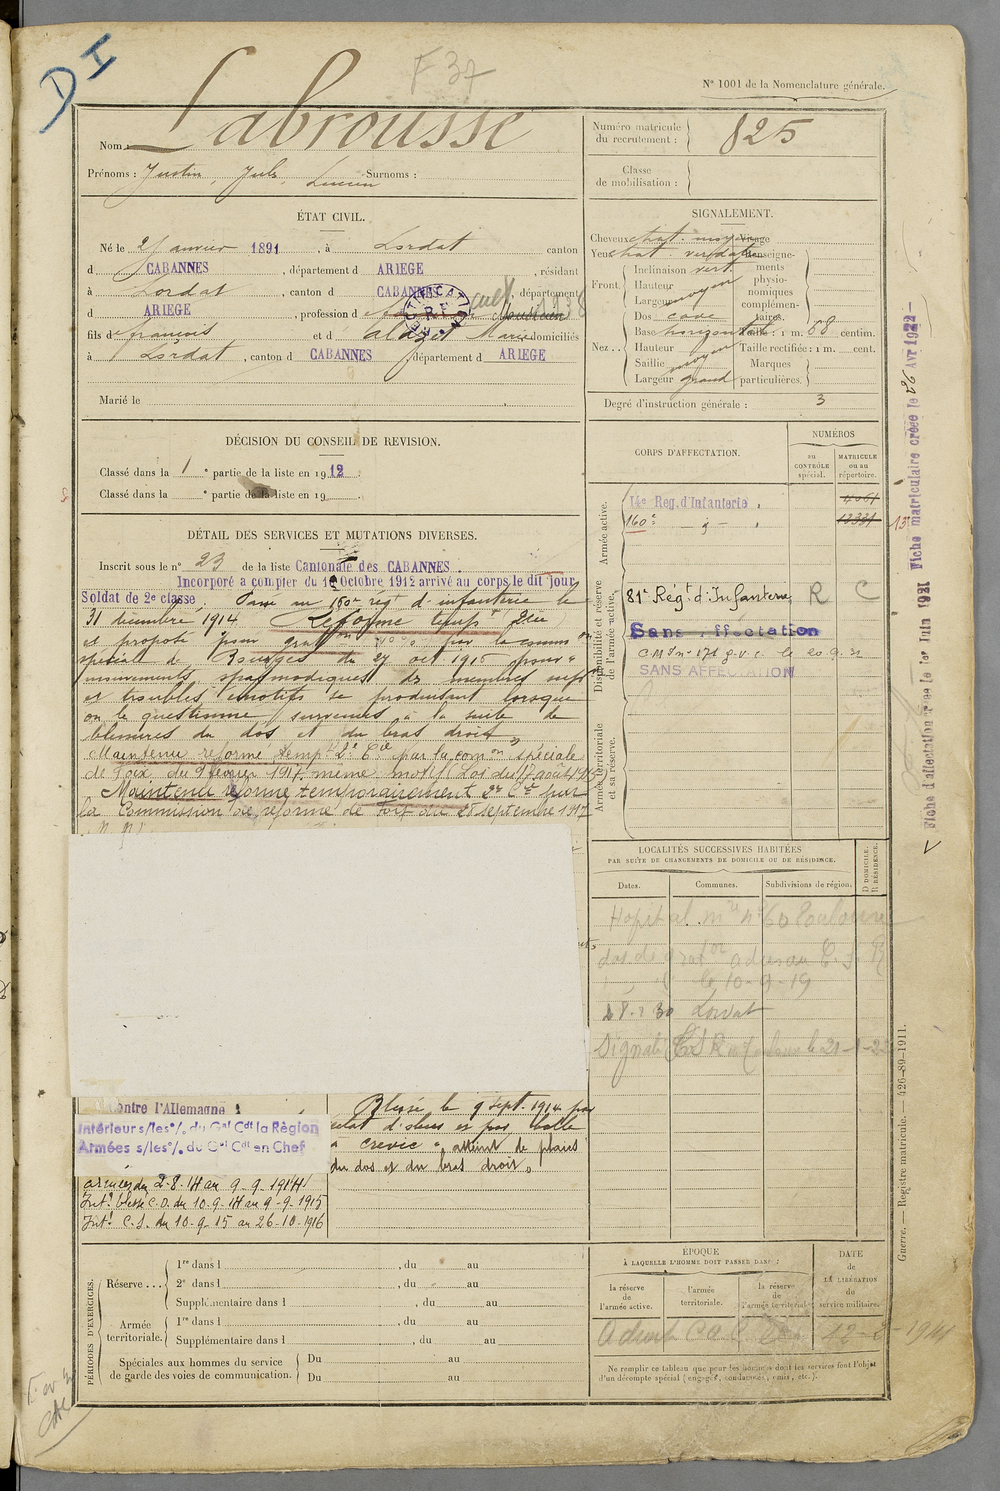 D I
F 37
N° 1001 de la Nomenclature générale.
Nom : Labrousse
Prénoms : Justin, Jules, Lucien Surnoms :
ÉTAT CIVIL.
Né le 2 Janvier 1891, à Lordat canton
d CABANNES, département d ARIEGE, résidant
à Lordat, canton d CABANNES, département
d ARIEGE, profession d cult
fils d françois et d Marie domiciliés
à Lordat, canton d CABANNES, département d ARIEGE
Marié le
DÉCISION DU CONSEIL DE REVISION.
Classé dans la 1e partie de la liste en 1912.
Classé dans la e partie de la liste en 19
DÉTAIL DES SERVICES ET MUTATIONS DIVERSES.
Inscrit sous le n° 23 de la liste Cantonale des CABANNES.
Incorporé a compter du 10 Octobre 1912 arrivé au corps le dit jour
Soldat de 2e classe, Passé au 160e rég t d'infanterie le
31 décembre 1914. Réforme temp
et proposé pour grat on par la comm on
spéciale de Bourges du 27 oct 1916 pour "
mouvements spasmodiques des membres
et troubles émotifs se produisant lorsque
on le questionne survenues à la suite de
blessures du dos et du bras droit "
Maintenu réformé temp re 2e Cie par la com on spéciale
de Foix du 9 février 1917 même motif (Loi du 17 août 1915
Maintenu réformé temporairement 2e Cie par
la Commission de réforme de Foix du 28 septembre 1917
contre l'Allemagne
Intérieur s/les o/. du Gal Cdt la Règion
Armées s/les o/. du Gal Cdt en Chef
armées du 2-8-14 au 9-9-1914
Int. blessé C.D. du 10-9-14 au 9-9-1915
Int. C.S. du 10-9-15 au 26-10-1916
Blessé le 9 sept. 1914 par
éclat d'obus et par balle
à Crevic " atteint de plaies
du dos et du bras droit "
PÉRIODES D'EXERCICES.
Réserve...
1re dans l , du au
2e dans l , du au
Supplémentaire dans l , du au
Armée territoriale.
1re dans l , du au
Supplémentaire dans l , du au
Spéciales aux hommes du service
de garde des voies de communication.
Du au
Du au
Numéro matricule
du recrutement : 825
Classe
de mobilisation :
SIGNALEMENT.
Cheveux chat. moyen Visage
Yeux chat. verdâtre Renseigne-
Front Inclinaison vert. ments
Hauteur physio-
Largeur moyen nomiques
complémen-
Dos cave taires.
Nez Base horizontal Taille : 1 m. 68 centim.
Hauteur Taille rectifiée : 1 m. cent.
Saillie moyen Marques
Largeur grand particulières.
Degré d'instruction générale : 3
CORPS D'AFFECTATION.
NUMÉROS
au CONTRÔLE spécial.
MATRICULE ou au répertoire.
Armée active.
14e Reg. d'Infanterie
160e
13331
Disponibilité et réserve de l'armée active.
81e Régt d'Infanterie R C
Sans ffectation
SANS AFFECTATION
Armée territoriale et sa réserve.
LOCALITÉS SUCCESSIVES HABITÉES
PAR SUITE DE CHANGEMENTS DE DOMICILE OU DE RÉSIDENCE.
Dates.
Communes.
Subdivisions de région.
D DOMICILE.
R RÉSIDENCE.
Hopital m re n° 60 Toulouse
le 10-9-19
Lordat
ÉPOQUE
À LAQUELLE L'HOMME DOIT PASSER DANS :
la réserve de l'armée active.
l'armée territoriale.
la réserve de l'armée territoriale.
DATE de LA LIBÉRATION du service militaire.
Ne remplir ce tableau que pour les hommes dont les services font l'objet
d'un décompte spécial (engagés, condamnés, omis, etc.).
Fiche d'affectation créée le 1er Juin 1921 Fiche matriculaire créée le 22 Avr 1922
Guerre. — Registre matricule. — 426-89-1911.